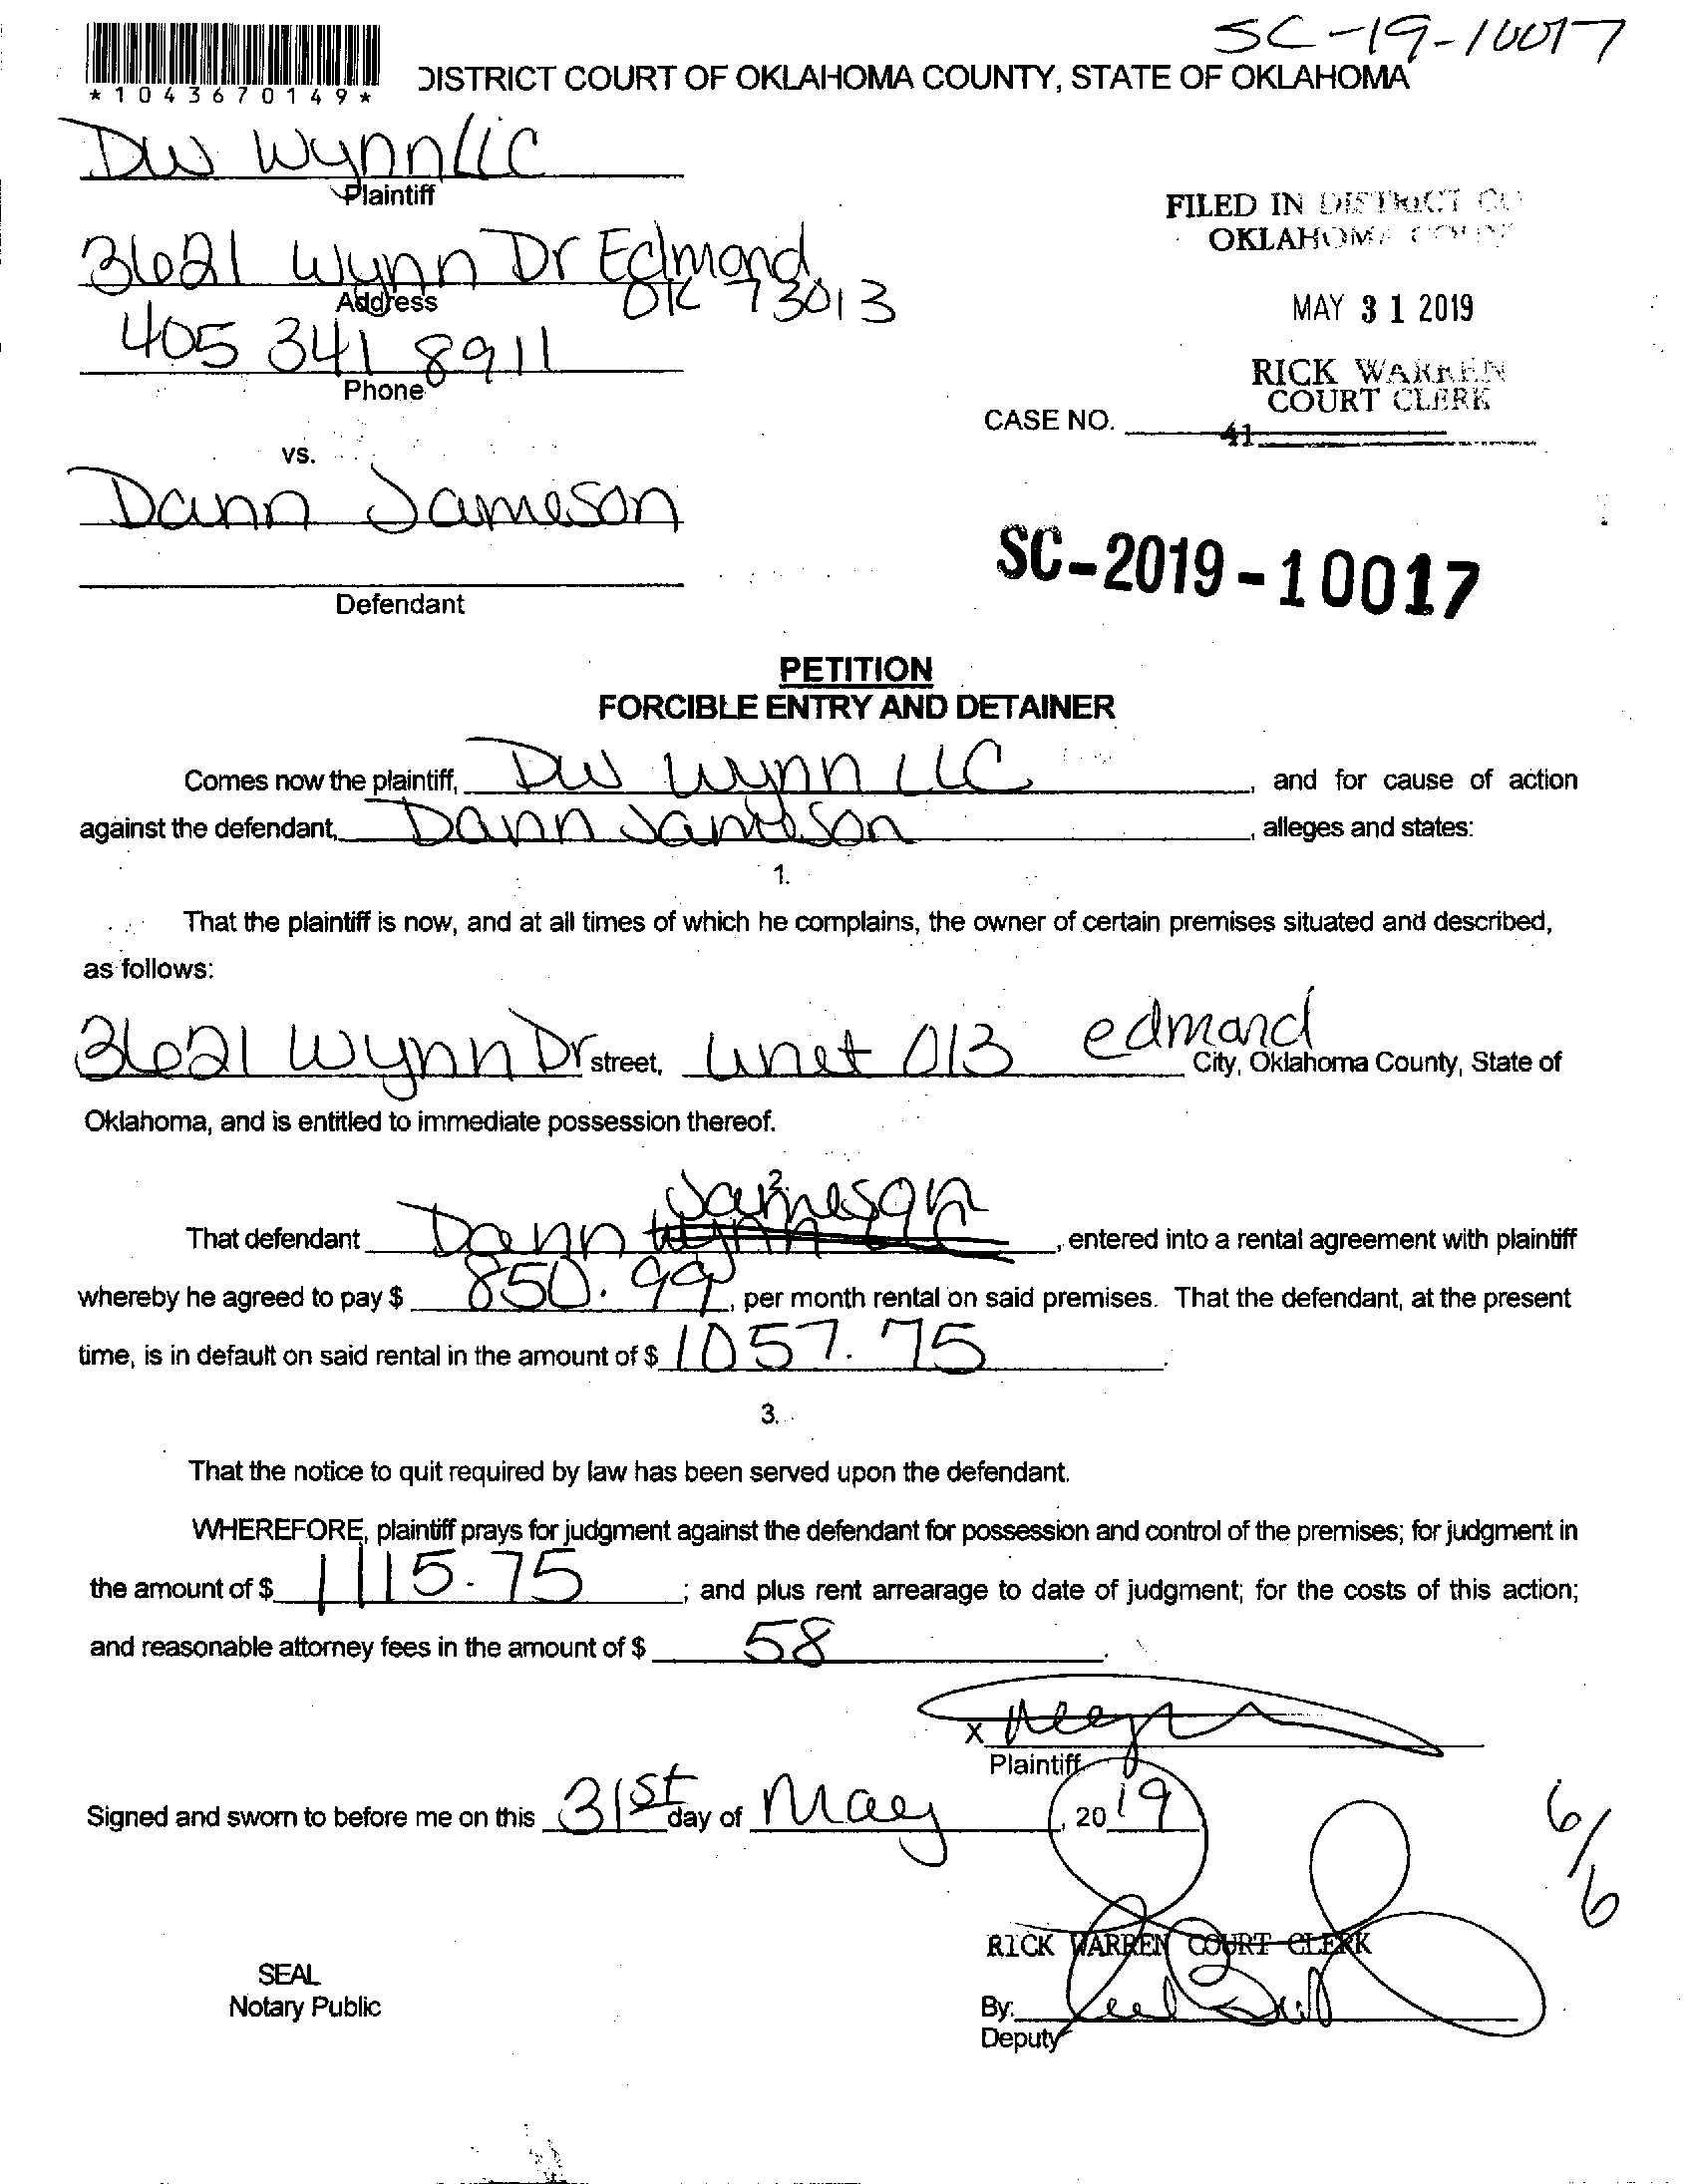 SC-19-10017
*1043670149*
DISTRICT COURT OF OKLAHOMA COUNTY, STATE OF OKLAHOMA
DW Wynn LLC
Plaintiff
FILED IN DISTRICT CO
OKLAHOMA COUN
3621 Wynn Dr Edmond
Address
OK 73013
MAY 31 2019
405 341 8911
Phone
RICK WARREN
COURT CLERK
CASE NO.
41
vs.
Dann Jameson
SC-2019-10017
Defendant
PETITION
FORCIBLE ENTRY AND DETAINER
Comes now the plaintiff, DW Wynn LLC, and for cause of action
against the defendant, Dann Jameson, alleges and states:
1.
That the plaintiff is now, and at all times of which he complains, the owner of certain premises situated and described,
as follows:
3621 Wynn Dr street, unit 013 edmond City, Oklahoma County, State of
Oklahoma, and is entitled to immediate possession thereof.
2.
That defendant Dann Jameson, entered into a rental agreement with plaintiff
whereby he agreed to pay $ 850.99, per month rental on said premises. That the defendant, at the present
time, is in default on said rental in the amount of $ 1057.75.
3.
That the notice to quit required by law has been served upon the defendant.
WHEREFORE, plaintiff prays for judgment against the defendant for possession and control of the premises; for judgment in
the amount of $ 1115.75; and plus rent arrearage to date of judgment; for the costs of this action;
and reasonable attorney fees in the amount of $ 58.
X
Plaintiff
Signed and sworn to before me on this 31st day of May, 2019
6/6
RICK WARREN COURT CLERK
SEAL
Notary Public
By:
Deputy